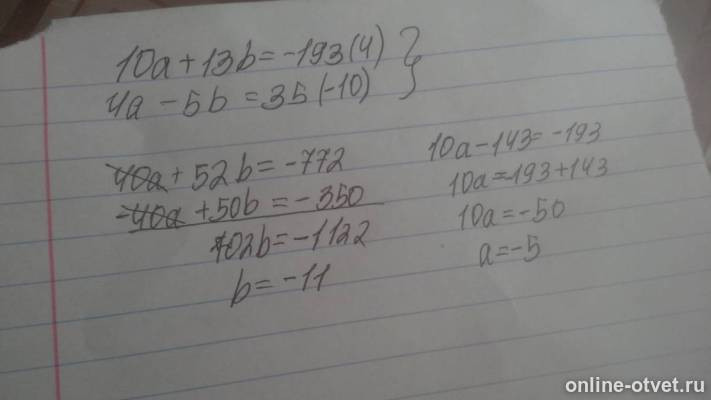 10a + 13b = -193 (4) }
4a - 5b = 35 (-10)
40a + 52b = -772
-40a + 50b = -350
102b = -1122
b = -11
10a - 143 = -193
10a = -193 + 143
10a = -50
a = -5
online-otvet.ru